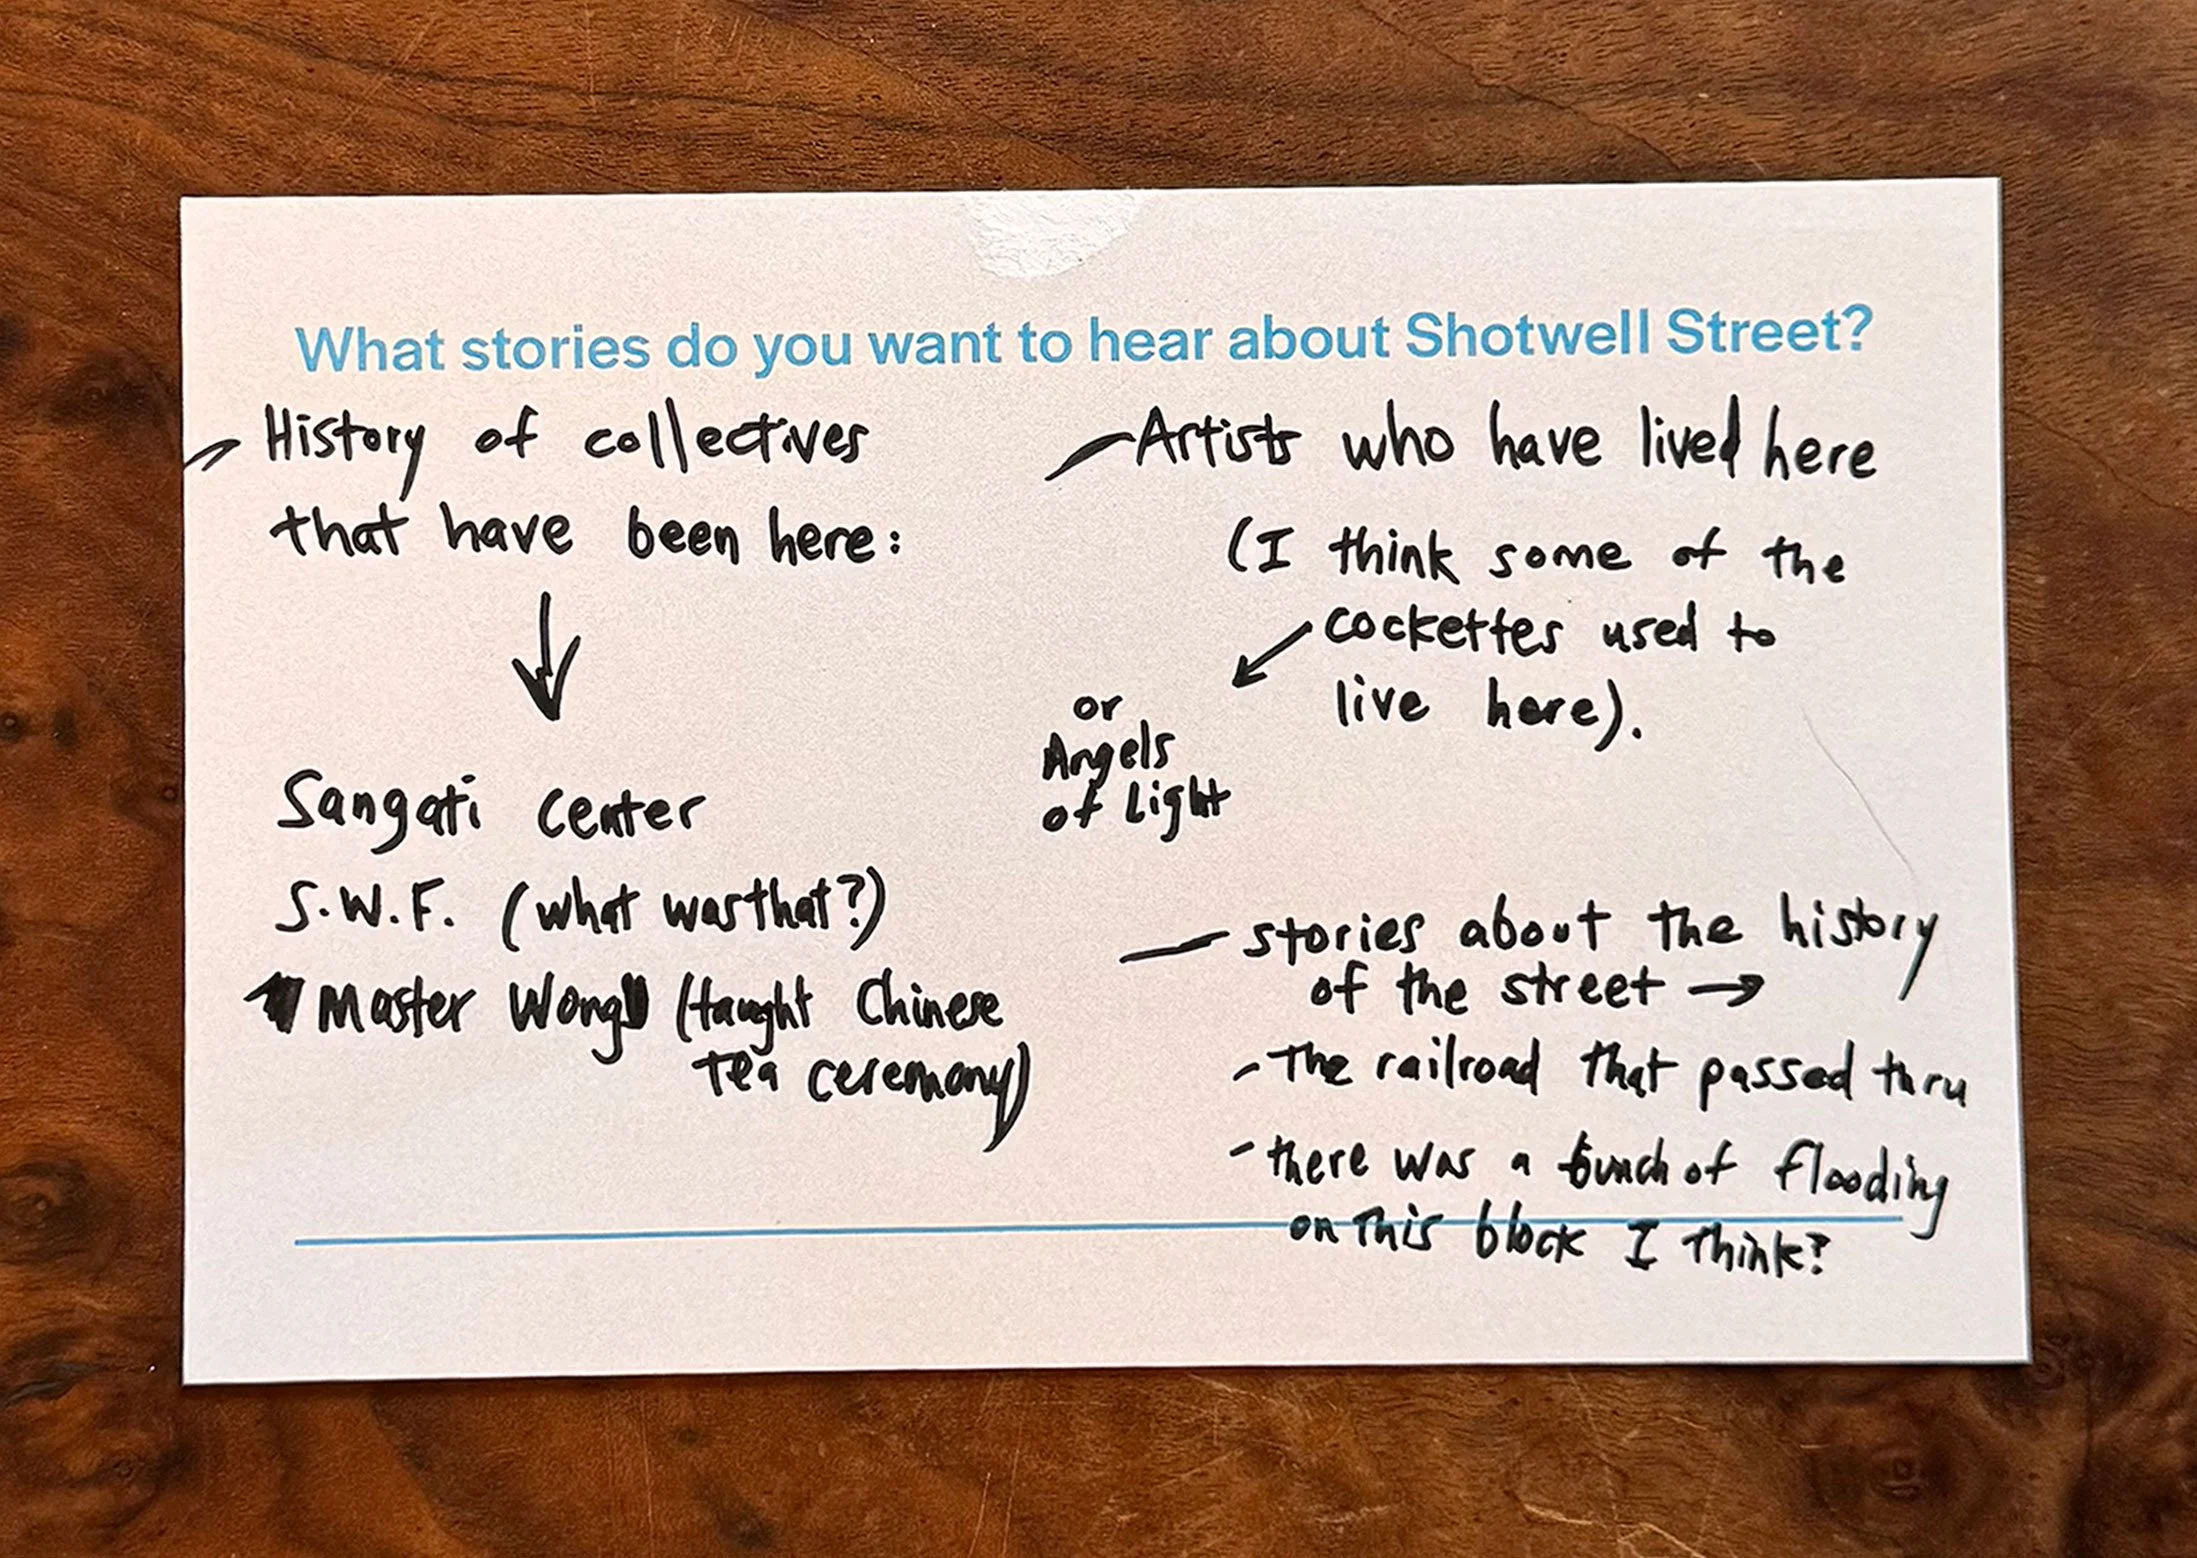 What stories do you want to hear about Shotwell Street?
- History of collectives
that have been here:
↓
Sangati center
S.W.F. (what was that?)
Master Wong (taught Chinese
tea ceremony)
- Artists who have lived here
(I think some of the
cockettes used to
live here).
or
Angels
of Light
- stories about the history
of the street →
- the railroad that passed thru
- there was a bunch of flooding
on this block I think?